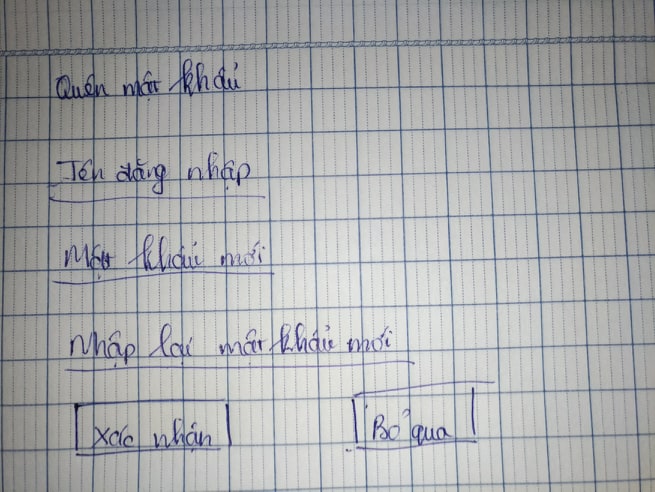 Quên mật khẩu
Tên đăng nhập
Mật khẩu mới
Nhập lại mật khẩu mới
Xác nhận Bỏ qua